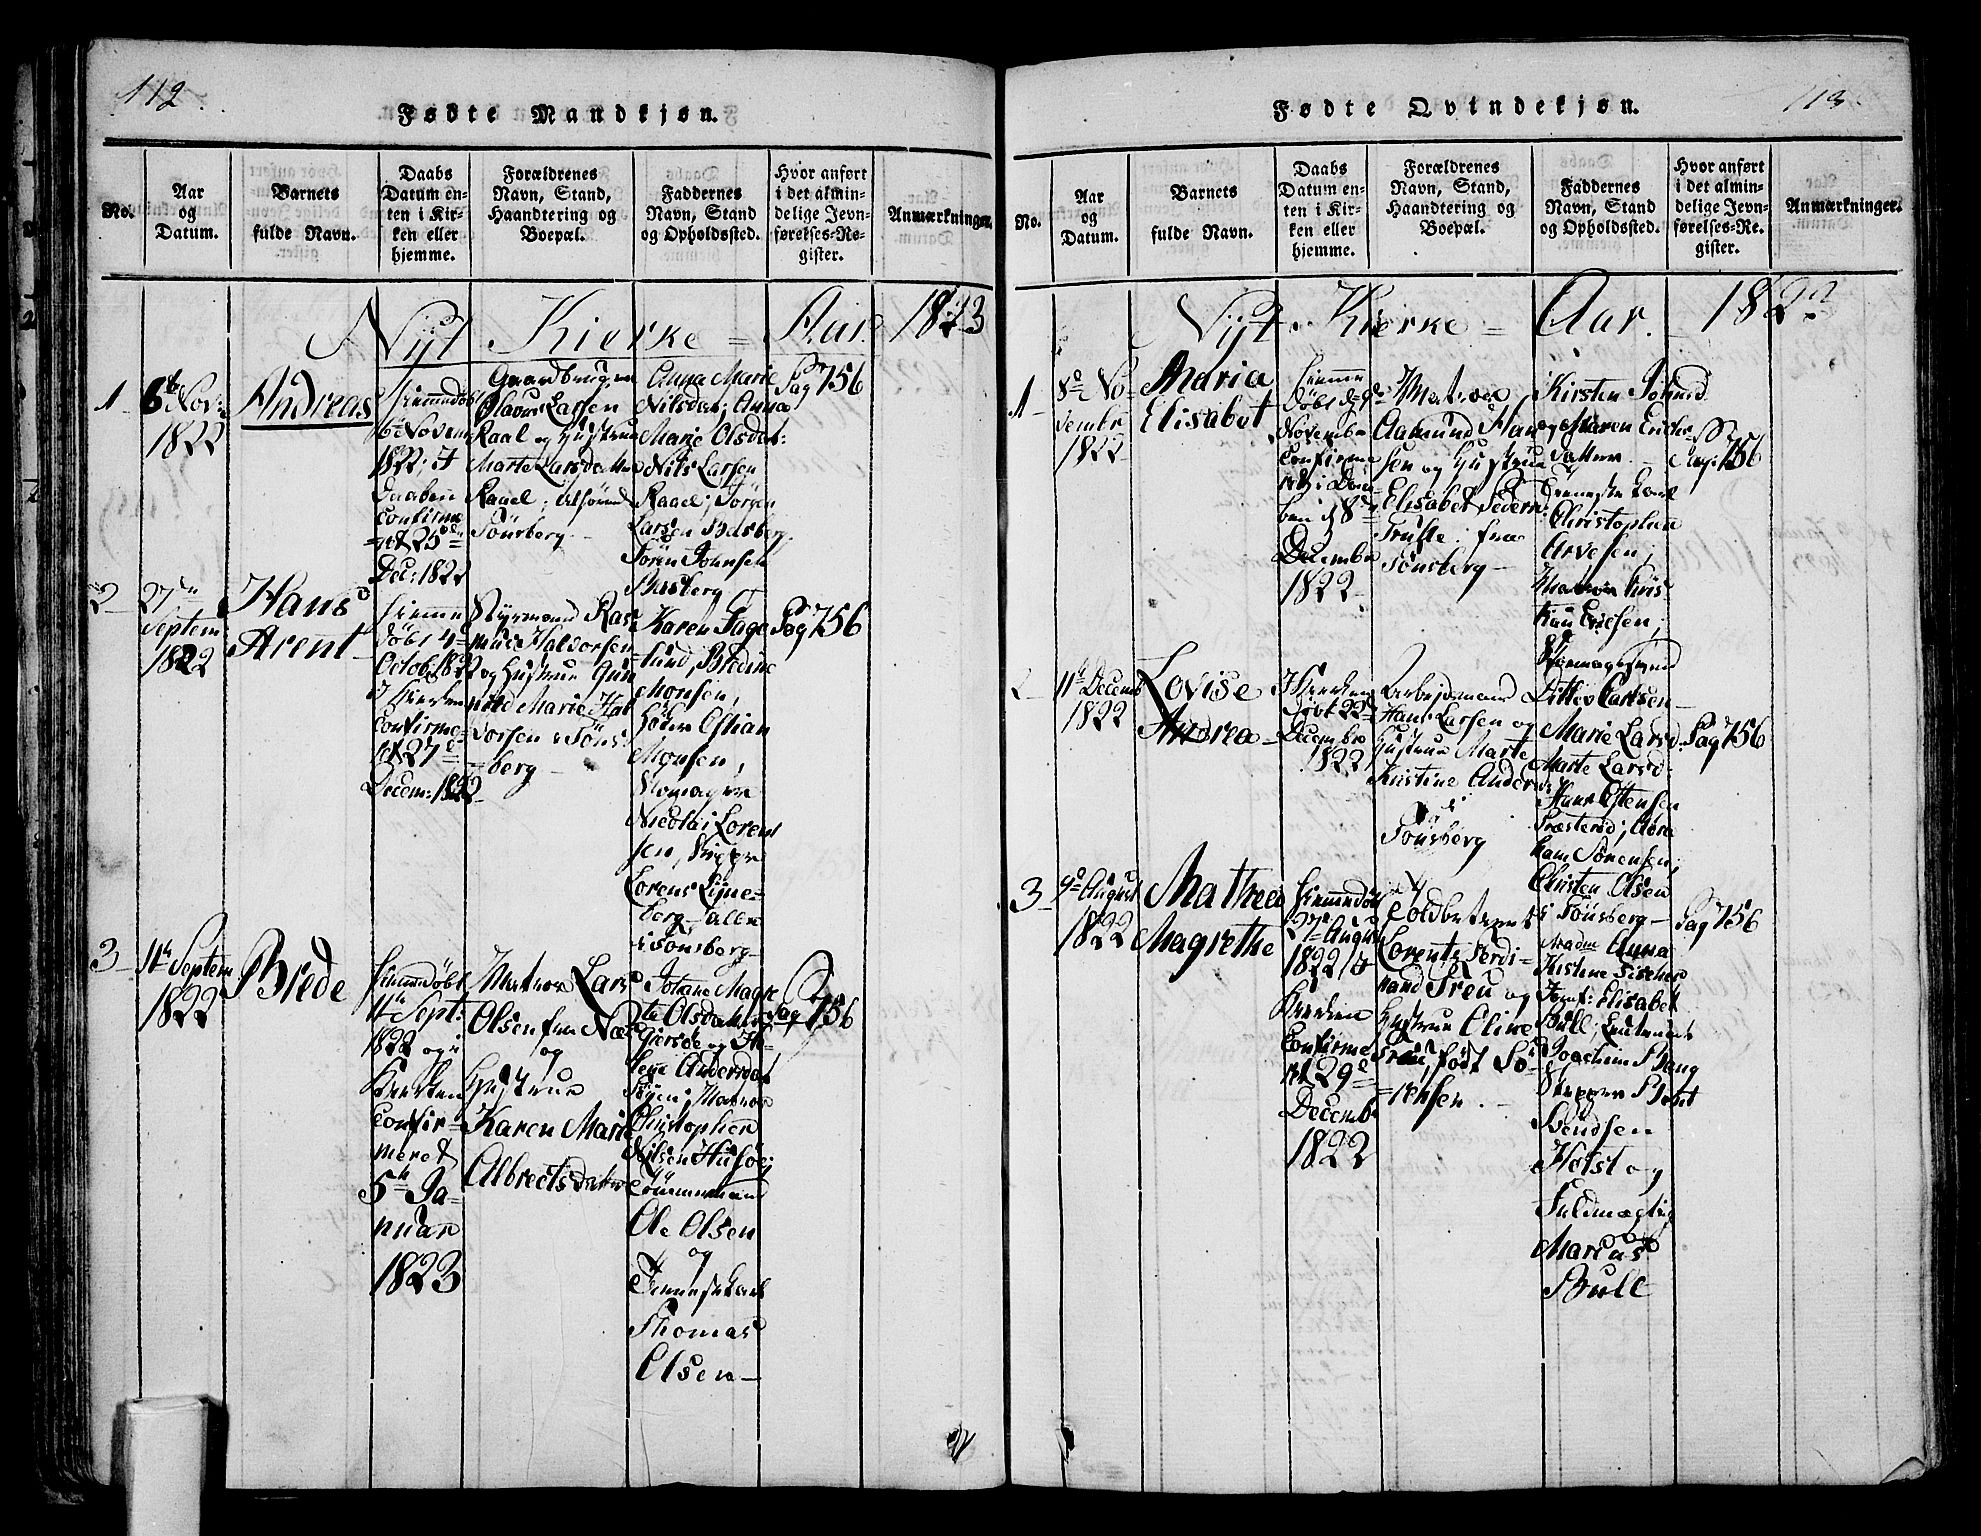 112
Fødte Mandkjøn.
No.
Aar
og
Datum.
Barnets
fulde Navn.
Daabs
Datum en-
ten i Kir-
ken eller
hjemme.
Forældrenes
Navn, Stand,
Haandtering og
Boepæl.
Faddernes
Navn, Stand
og Opholdssted.
Hvor anført
i det almin-
delige Jevn-
førelses-Re-
gister.
Anmærkninger.
Nÿt Kierke = Aar. 1823
1
6te Nov:
1822
Andreas
Hiemmedöbt
6te Novem
1822; I
Daaben
Confirme
ret 25de
Dec: 1822
Gaardbruger
Olavus Larsen
Raal og Hustrue
Marte Larsdatter
Raael;
Tönsberg
Anna Marie
Nilsdat; Anna
Marie Olsdat:
Nils Larsen
Raael; Jörgen
Larsen
Sören Johnsen
Busberg
Pag 756
2
27de
Septem
1822
Hans
Arent
Hiemme
döbt 4de
Octob 1822
I Kierken
Confirme=
ret 27de
Decem: 1822
Styrmand Ras
mus Haldorsen
og Hustrue Gun
nild Marie Hal
dorsen i Töns
=berg
Karen Fage
lund, Bredine
Monsen,
Monsen,
Nicolai Lorent
sen, Skipper
Lorens Lyne=
berg alle
i Tönsberg
Pag 756
3
11te Septem
1822
Brede
Hiemmedöbt
11te Sept:
1822 og i
Kierken
Confir=
meret
5te Ja=
nuar
1823
Matros Lars
Olsen fra
og
Hustrue
Karen Marie
Albrectsdatter
Johane Magre
te Olsdatter
og
Andersdat
Matros
Christopher
Nilsen Husöe
Tömmermand
Ole Olsen
og
Tienestekarl
Thomas
Olsen
Pag 756
113
Fødte Qvindekjøn.
No.
Aar
og
Datum.
Barnets
fulde Navn.
Daabs
Datum en-
ten i Kir-
ken eller
hjemme.
Forældrenes
Navn, Stand,
Haandtering og
Boepæl.
Faddernes
Navn, Stand
og Opholdssted.
Hvor anført
i det almin-
delige Jevn-
førelses-Re-
gister.
Anmærkninger.
Nÿt Kierke = Aar. 1823
1
8de No
vembr
1822
Maria
Elisabet
Hiemme
döbt d 9de
Novembr
Confirme
ret i Daa
ben d 8de
Decembr
1822
Matros
Aamund Han
sen og Hustrue
Elisabet Peders
fra
Tönsberg
Kirsten
og Maren Erichs
datter
Tienestekarl
Christopher
Arvesen;
Matros Chris
tian Eriesen;
Pag: 756
2
11te Decemb
1822
Lovise
Andrea
I Kierken
Döbt 22de
Decembr
1822
Arbeidsmand
Hans Larsen og
Hustrue Marte
Kristine Anders
i
Tönsberg
Skomagersvend
Ditlev Carlsen
Marie Larsd:
Marte Larsd:
Hans Estensen
Præsteröd; Abra
ham Sörensen;
Christen Olsen
i Tönsberg
Pag 756
3
9de August
1822
Mathea
Magrethe
Hiemmedöbt
27de August
1822, I
Kierken
Confirme
ret 29de
Decemb
1822
Toldbetient
Lorentz Ferdi=
nand Treu og
Hustrue Oline
Treu, född Sö=
rensen
Madm Anna
Kistine Fischer
Jomf: Elisabet
Bull; Leutenant
Joachim Bang
Skipper
Svendsen
Holst og
Fuldmægtig
Marcus
Bull
Pag 756